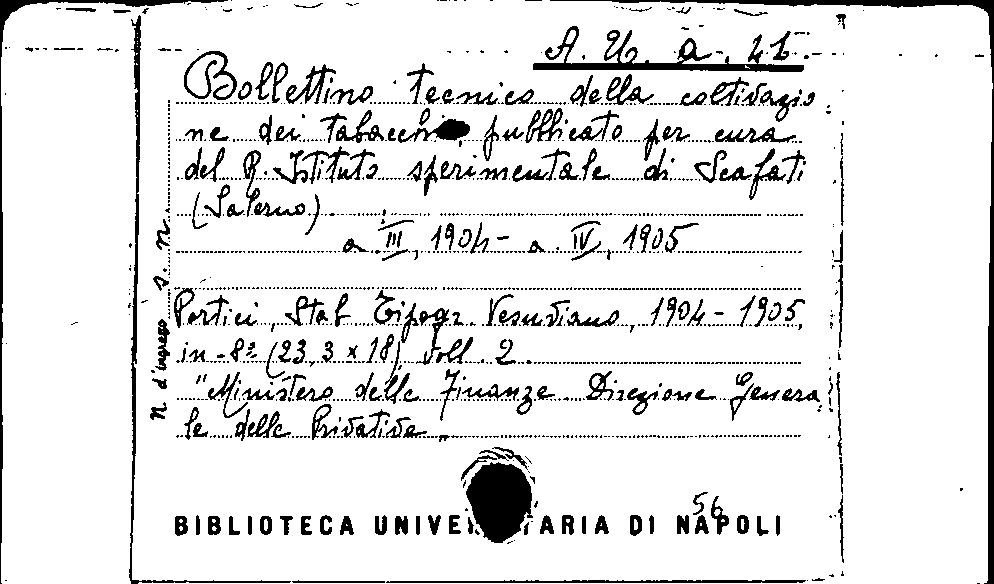 A. U. a. 41.
Bollettino tecnico della coltivazio
ne dei tabacchi pubblicato per cura
del R. Istituto sperimentale di Scafati
(Salerno).
a. III, 1904 - a. IV, 1905
Portici, Stab. Tipogr. Vesuviano, 1904 - 1905,
in-8º (23,3 x 18) voll. 2.
"Ministero delle Finanze. Direzione Genera
le delle Privative"
N. d'ingresso s. n.
56
BIBLIOTECA UNIVER TARIA DI NAPOLI